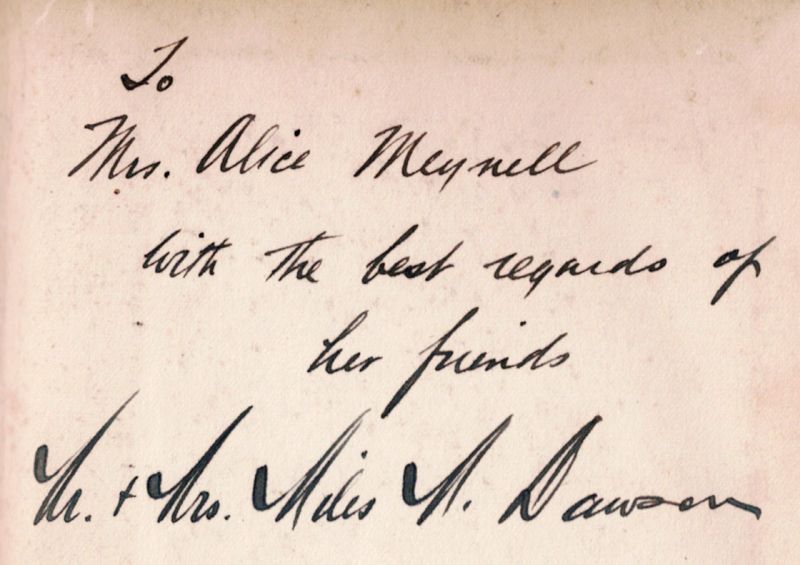 To
Mrs. Alice Meynell
with the best regards of
her friends
Mr. + Mrs. Miles M. Dawson